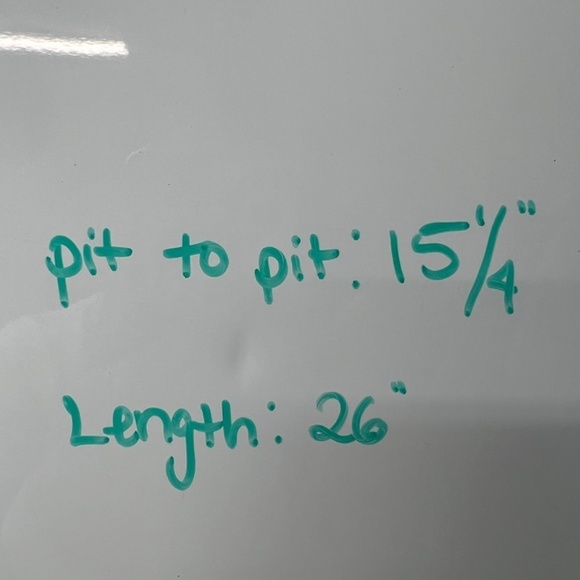 pit to pit: 15 1/4"
Length: 26"